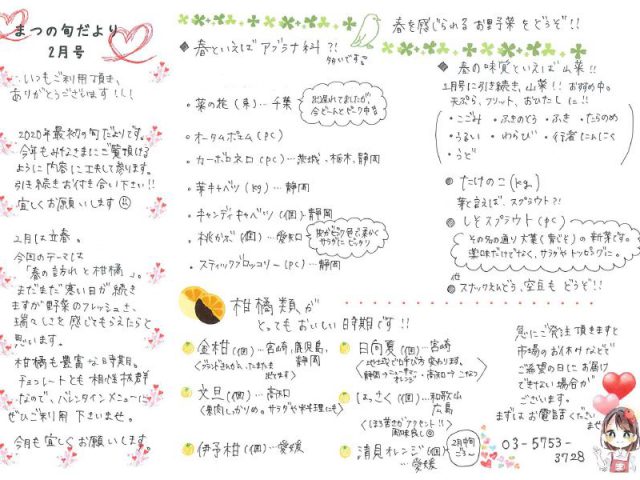 まつの旬だより
2月号
いつもご利用頂き、
ありがとうございます!!!
2020年最初の旬だよりです。
今年もみなさまにご覧頂ける
ように内容に工夫して参ります。
引き続きお付き合い下さい!!
宜しくお願いします
2月は立春。
今回のテーマは
「春の訪れと柑橘」。
まだまだ寒い日が続き
ますが野菜のフレッシュさ、
瑞々しさを感じてもらえたらと
思います。
柑橘も豊富な時期。
チョコレートとも相性抜群
なので、バレンタインメニューに
ぜひご利用下さいませ。
今月も宜しくお願いします
春を感じられるお野菜をどうぞ!!
◆春といえばアブラナ科?!
多いです。
・菜の花(束)…千葉
出遅れてましたが、
今どーんとピーク中
・オータムポエム(PC)
・カーボロネロ(PC)…茨城、栃木、静岡
・芽キャベツ(kg)…静岡
・キャンディキャベツ(1個)静岡
・桃かぶ(1個)…愛知
サラダにピッタリ
・スティックブロッコリー(PC)…静岡
◆春の味覚といえば山菜!!
1月号に引き続き、山菜!!おすすめ中。
天ぷら、フリット、おひたしに!!
・こごみ・ふきのとう・ふき・たらのめ
・うるい・わらび・行者にんにく
・うど
たけのこ(kg)
芽と言えば、スプラウト?!
しそスプラウト(PC)
その名の通り大葉(青じそ)の新芽です。
薬味だけでなく、サラダやトッピングに。
他
スナックえんどう、空豆もどうぞ!!
柑橘類が
とってもおいしい時期です!!
金柑(1個)…宮崎、鹿児島、
静岡
文旦(1個)…高知
(果肉しっかりめ。サラダやお料理にも)
伊予柑(1個)…愛媛
日向夏(1個)…宮崎
はっさく(1個)…和歌山
広島
(ほろ苦さがアクセント!!
清見オレンジ(1個)
…愛媛
2月中旬
ごろ〜
急にご発注頂きますと
市場のお休みなどで
ご希望の日にお届け
できない場合が
ございます。
まずはお電話ください
ませ
03-5753-
3728